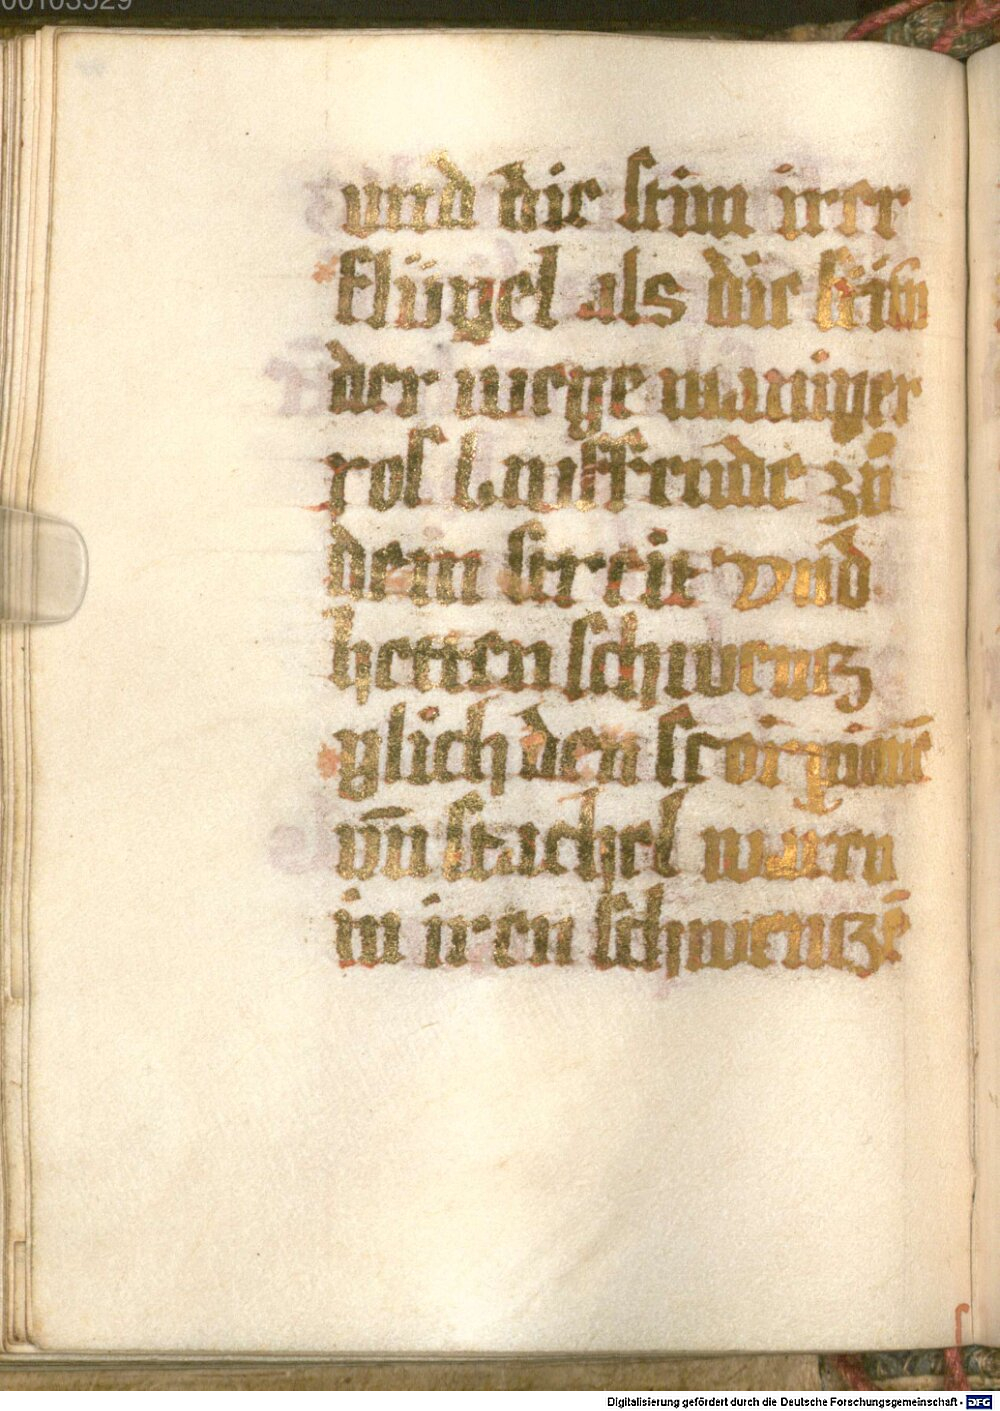 00103529
und die stim irer
flügel als die stim
der wege maniger
ros lauffende zů
dem streit vnd
hetten schwencz
glich den scorpionē
vn̄ stachel warn
in iren schwenczē
Digitalisierung gefördert durch die Deutsche Forschungsgemeinschaft - DFG